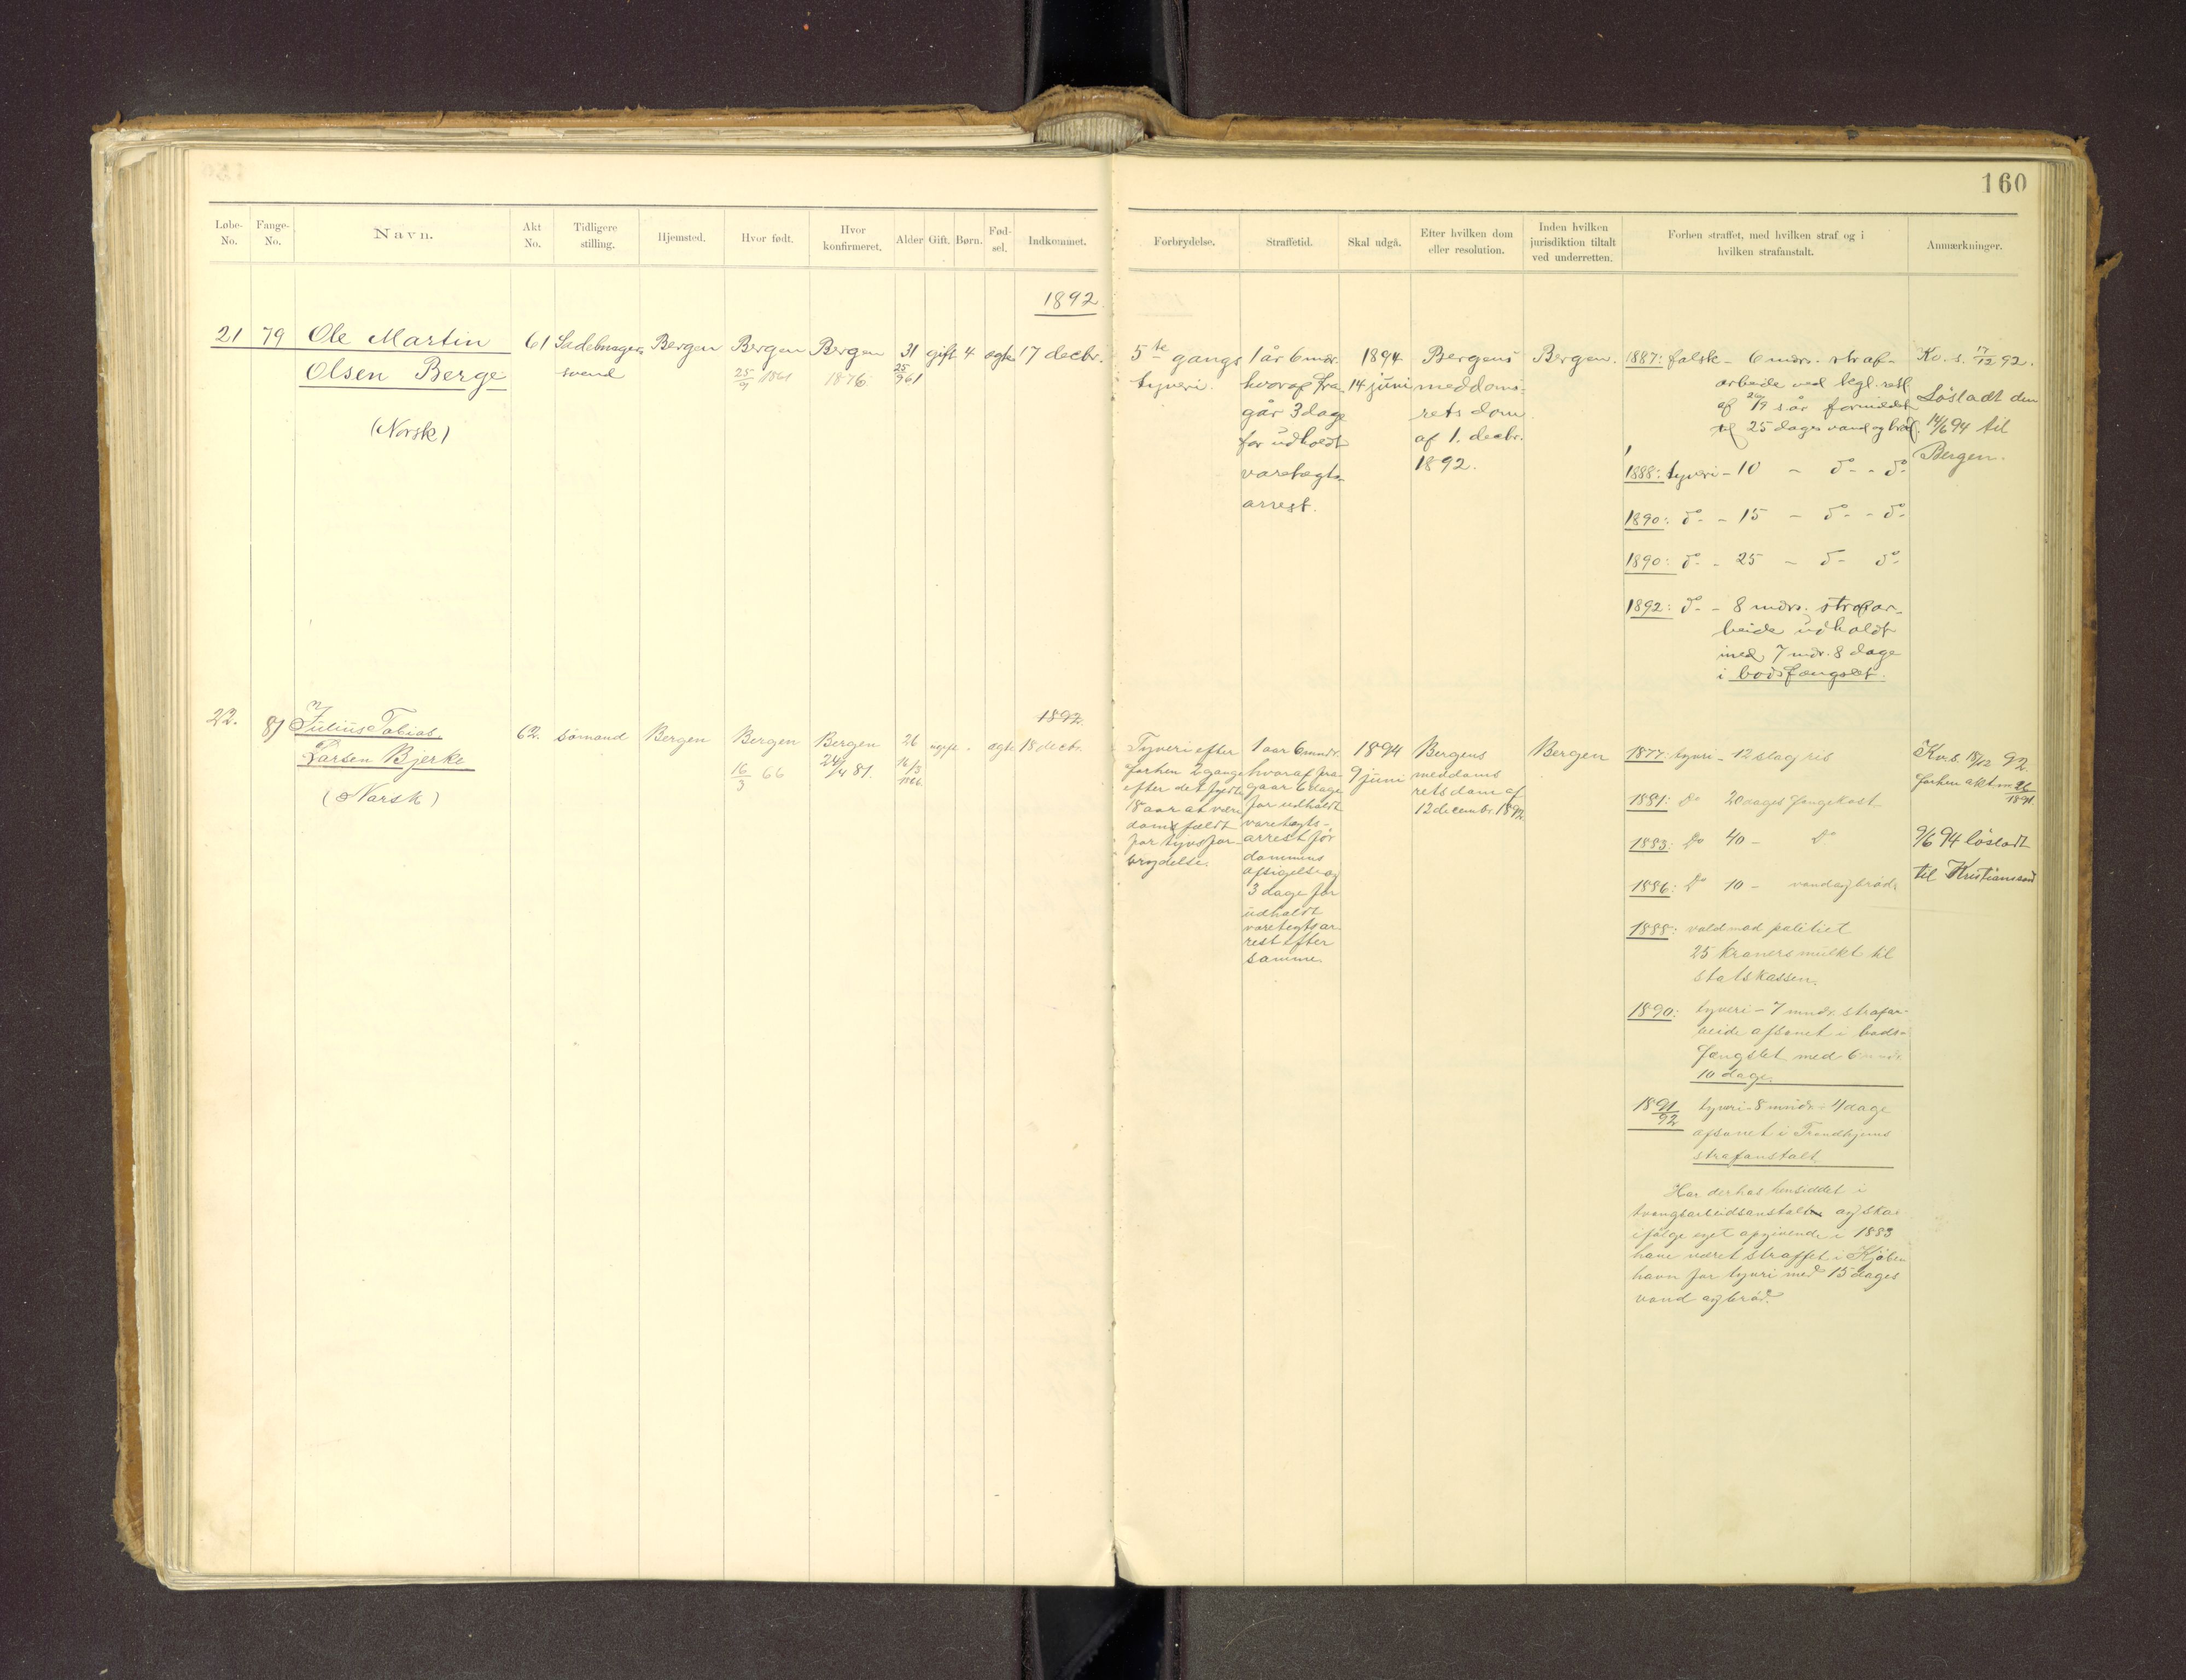 160
Løbe-No.
Fange-No.
Navn.
Akt No.
Tidligere stilling.
Hjemsted.
Hvor født.
Hvor konfirmeret.
Alder
Gift.
Børn.
Fødsel.
Indkommet.
Forbrydelse.
Straffetid.
Skal udgå.
Efter hvilken dom eller resolution.
Inden hvilken jurisdiktion tiltalt ved underretten.
Forhen straffet, med hvilken straf og i hvilken strafanstalt.
Anmærkninger.
1892.
21
79
Ole Martin
Olsen Berge
(Norsk)
61
Sadelmager-
svend
Bergen
Bergen
25/9 1861
Bergen
1876
31
25/9 61
gift
4
ægte
17 decbr.
5te gangs
tyveri.
1 år 6 mdr.
hvoraf fra-
går 3 dage
for udholdt
varetægts-
arrest.
1894
14 juni
Bergens
meddoms-
rets dom
af 1. decbr.
1892.
Bergen.
1887: falsk - 6 mdrs. straf-
arbeide ved kgl. resl.
af 29/9 s år formildet
til 25 dages vand og brød.
1888: tyveri - 10 - do - do
1890: do - 15 - do - do
1890: do - 25 - do do
1892: do - 8 mdrs. strafar-
beide udholdt
med 7 mdr. 8 dage
i bodsfængslet.
Kv. s. 17/12 92.
Løsladt den
14/6 94 til
Bergen.
22.
81
Julius Tobias
Larsen Bjerke
(Norsk)
62.
sømand
Bergen
Bergen
16/3 66
Bergen
24/4 81.
26
16/3
ugift
.
ægte
1892.
18 decbr.
Tyveri efter
forhen 2 gange
efter det fyldte
18 aar at være
domsfældt
for tyvsfor-
brydelse.
1 aar 6 mndr.
hvoraf fra-
gaar 6 dage
for udholdt
varetægts-
arrest før
dommens
afsigelse og
3 dage for
udholdt
varetegtsar
rest efter
samme.
1894
9 juni
Bergens
meddoms
rets dom af
12 decembr. 1892
Bergen
1877: tyveri - 12 slag ris
1881: Do 20 dages fangekost
1883: Do 40 - Do
1886: Do 10 - vand og brød.
1888: vold mod politiet
25 kroners mulkt til
statskassen.
1890: tyveri - 7 mndr. strafar-
beide afsonet i bods-
fængslet med 6 mndr
10 dage.
1891/92 tyveri - 8 mndr. 4 dage
afsonet i Trondhjems
strafanstalt.
Har derhos hensiddet i
tvangsarbeidsanstalt og skal
ifølge eget opgivende i 1883
have været straffet i Kjøben
havn for tyveri med 15 dages
vand og brød.
Kv. s. 18/12 92.
forhen akt no 26/1891
9/6 94 løsladt
til Kristianssand